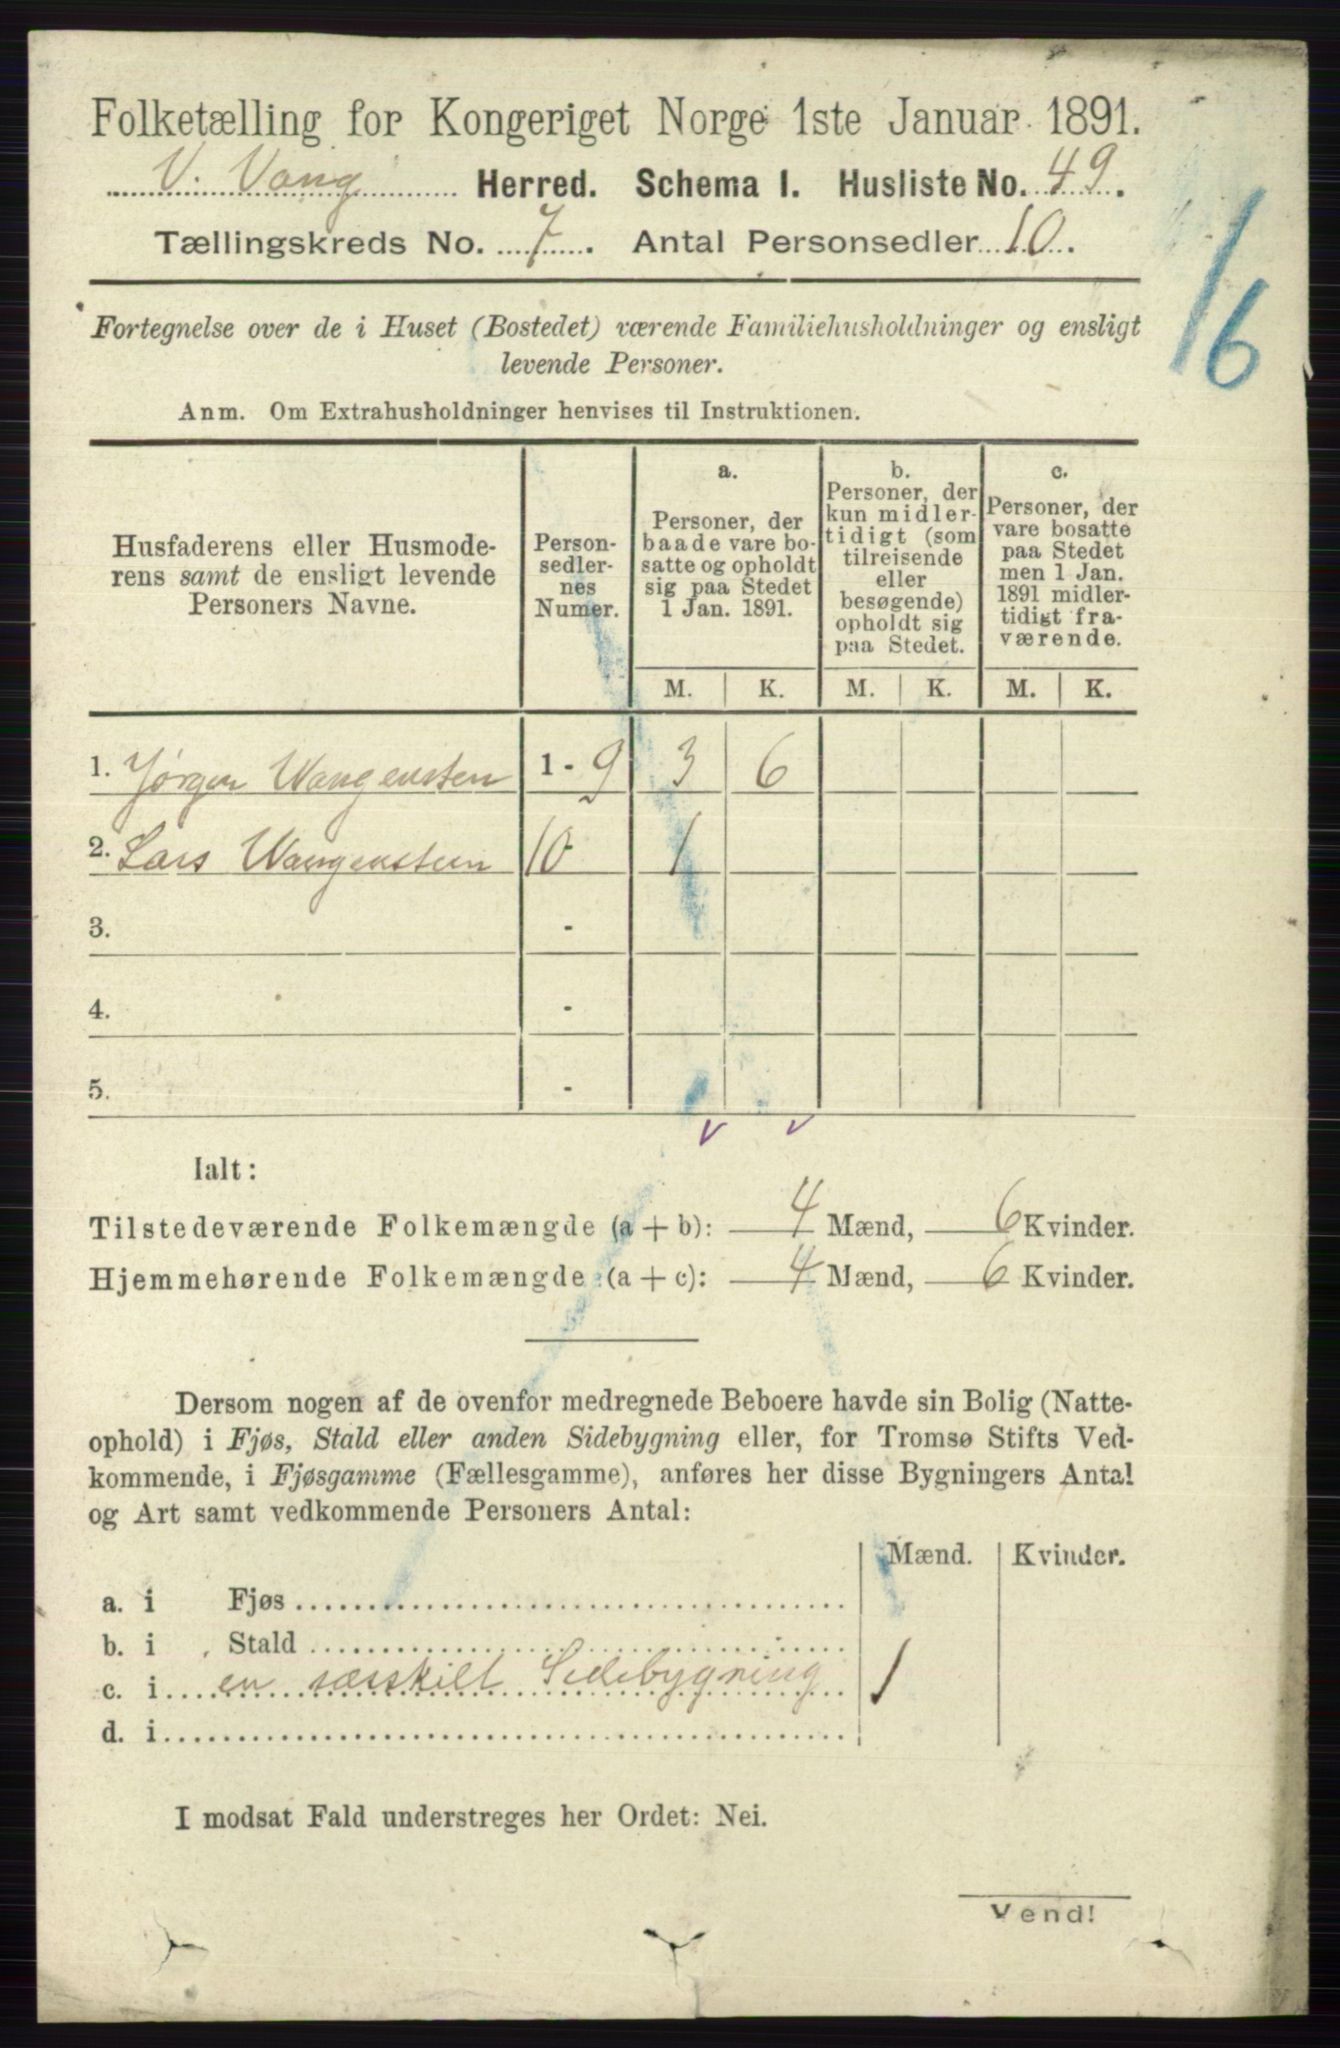 Folketælling for Kongeriget Norge 1ste Januar 1891.
V. Vang Herred. Schema I. Husliste No. 49.
Tællingskreds No. 7. Antal Personsedler 10.
16
Fortegnelse over de i Huset (Bostedet) værende Familiehusholdninger og ensligt
levende Personer.
Anm. Om Extrahusholdninger henvises til Instruktionen.
Husfaderens eller Husmode-
rens samt de ensligt levende
Personers Navne.
Person-
sedler-
nes
Numer.
a.
Personer, der
baade vare bo-
satte og opholdt
sig paa Stedet
1 Jan. 1891.
b.
Personer, der
kun midler-
tidigt (som
tilreisende
eller
besøgende)
opholdt sig
paa Stedet.
c.
Personer, der
vare bosatte
paa Stedet
men 1 Jan.
1891 midler-
tidigt fra-
værende.
M. K. M. K. M. K.
1. Jørgen Wangensten 1 - 9 3 6
2. Lars Wangensteen 10 1
3. -
4. -
5. -
Ialt:
Tilstedeværende Folkemængde (a + b): 4 Mænd, 6 Kvinder.
Hjemmehørende Folkemængde (a + c): 4 Mænd, 6 Kvinder.
Dersom nogen af de ovenfor medregnede Beboere havde sin Bolig (Natte-
ophold) i Fjøs, Stald eller anden Sidebygning eller, for Tromsø Stifts Ved-
kommende, i Fjøsgamme (Fællesgamme), anføres her disse Bygningers Antal
og Art samt vedkommende Personers Antal:
Mænd. Kvinder.
a. i Fjøs
b. i Stald
c. i en særskilt Sidebygning 1
d. i
I modsat Fald understreges her Ordet: Nei.
Vend!